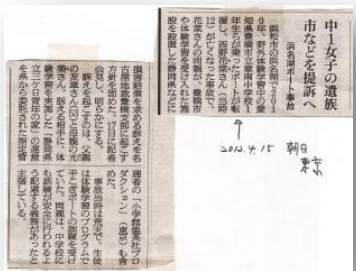 中1女子の遺族
市などを提訴へ
浜名湖ボート事故
浜松市の浜名湖で201
0年、野外体験学習中の愛
知県豊橋市立章南中学校1
年生らが乗ったボートが転
覆し、西野花菜さん(当時
12)が亡くなった事故で、
花菜さんの両親が豊橋市
や体験学習を受け入れた施
設を設置した静岡県などに
損害賠償を求める訴えを名
古屋地裁豊橋支部に起こす
方針を固めた。17日に記者
会見し、明らかにする。
訴えを起こすのは、父親
の友章さんと母親の光
美さん。訴える相手に、体
験学習を実施した「静岡県
立三ケ日青年の家」の運営
を県から委託された指定管
理者の「小学館集英社プロ
ダクション」(東京)も含
めた。
事故当時は荒天で、生徒
は体験学習のプログラムで
手こぎボートの訓練を受け
ていた。両親は、中学校に
も訓練が安全に行われるよ
う配慮する義務があったと
主張している。
2012.4.15 朝日
東京